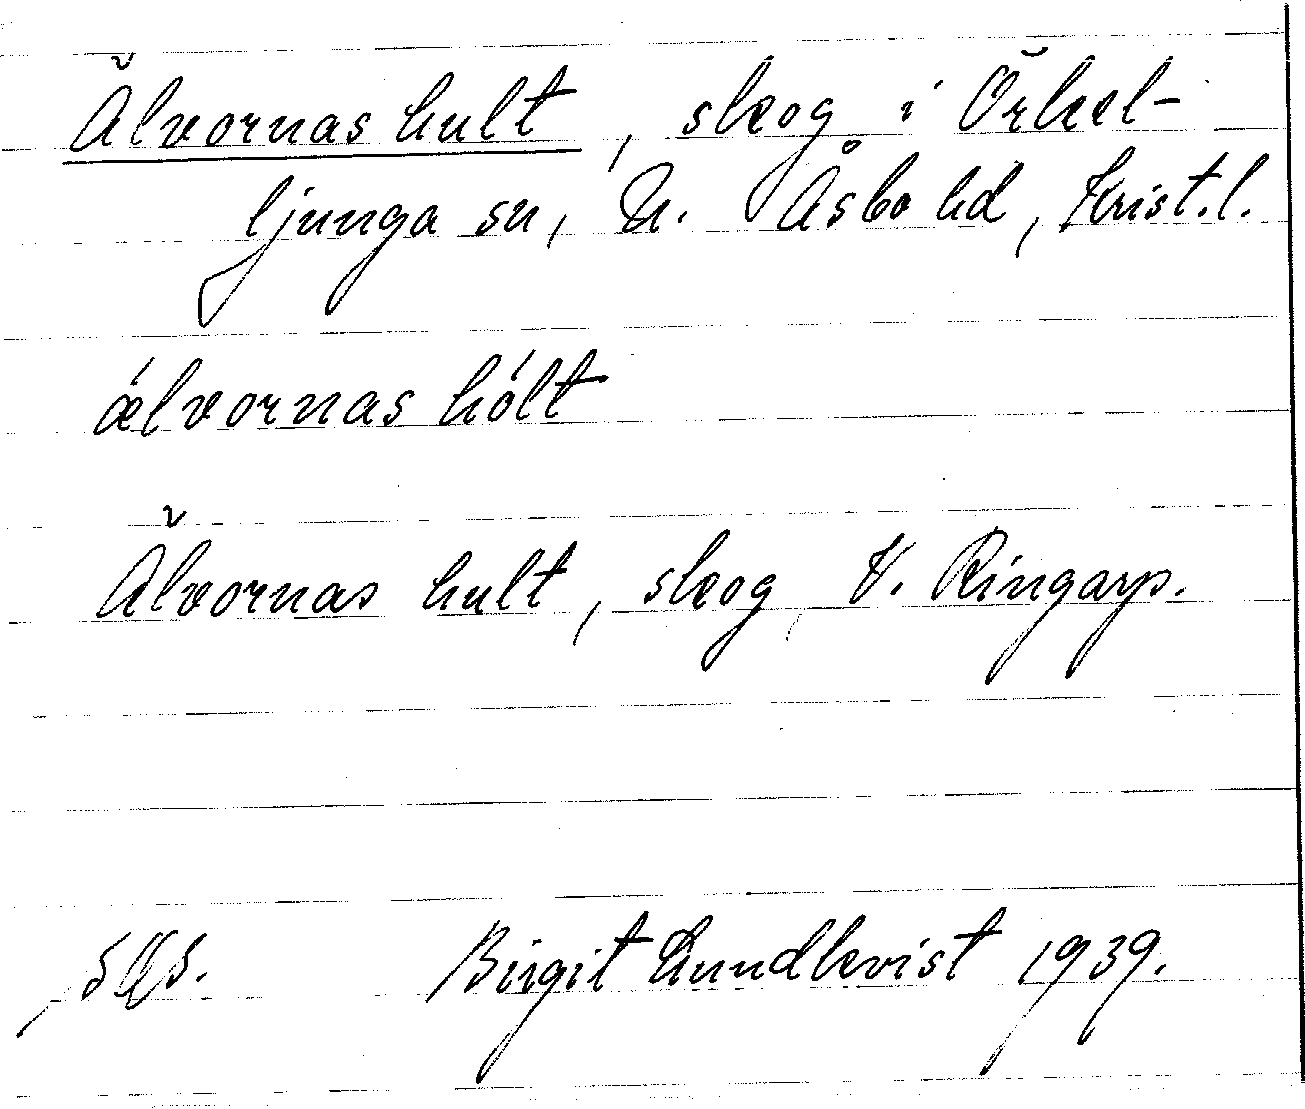 Älvornas hult, skog i Örkel-
ljunga sn, N. Åsbo hd, Krist.l.
ǽlvornas hólt
Älvornas hult, skog V. Ringarp.
Birgit Lundkvist 1939.